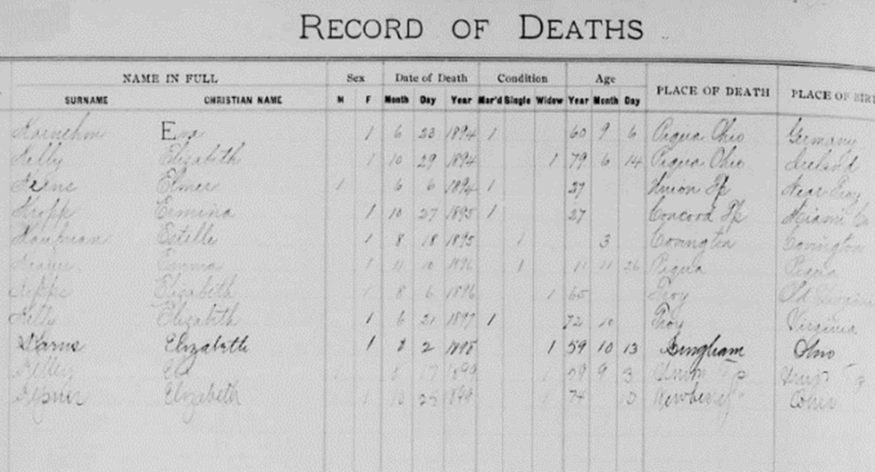 RECORD OF DEATHS
NAME IN FULL Sex Date of Death Condition Age PLACE OF DEATH PLACE OF BIRT
SURNAME CHRISTIAN NAME M F Month Day Year Mar'd Single Widow Year Month Day
Eva 1 6 23 1894 1 60 9 6 Piqua Ohio Germany
Kelly Elizabeth 1 10 29 1894 1 79 6 14 Piqua Ohio Ireland
Elmer 1 6 6 1894 1 27 Union Tp Near Troy
Kropp Ermina 1 10 27 1895 1 27 Concord Tp Miami Co
Kaufman Estelle 1 8 18 1895 1 3 Covington Covington
Emma 1 11 10 1896 1 11 11 26 Piqua Piqua
Elizabeth 1 8 6 1896 1 65 Troy Old Virginia
Kelly Elizabeth 1 6 21 1897 1 72 10 Troy Virginia
Elizabeth 1 8 2 1898 1 59 10 13 Bingham Ohio
Kelley 8 17 1899 1 59 9 3 Union Tp
Elizabeth 1 10 25 1899 1 74 Newberry